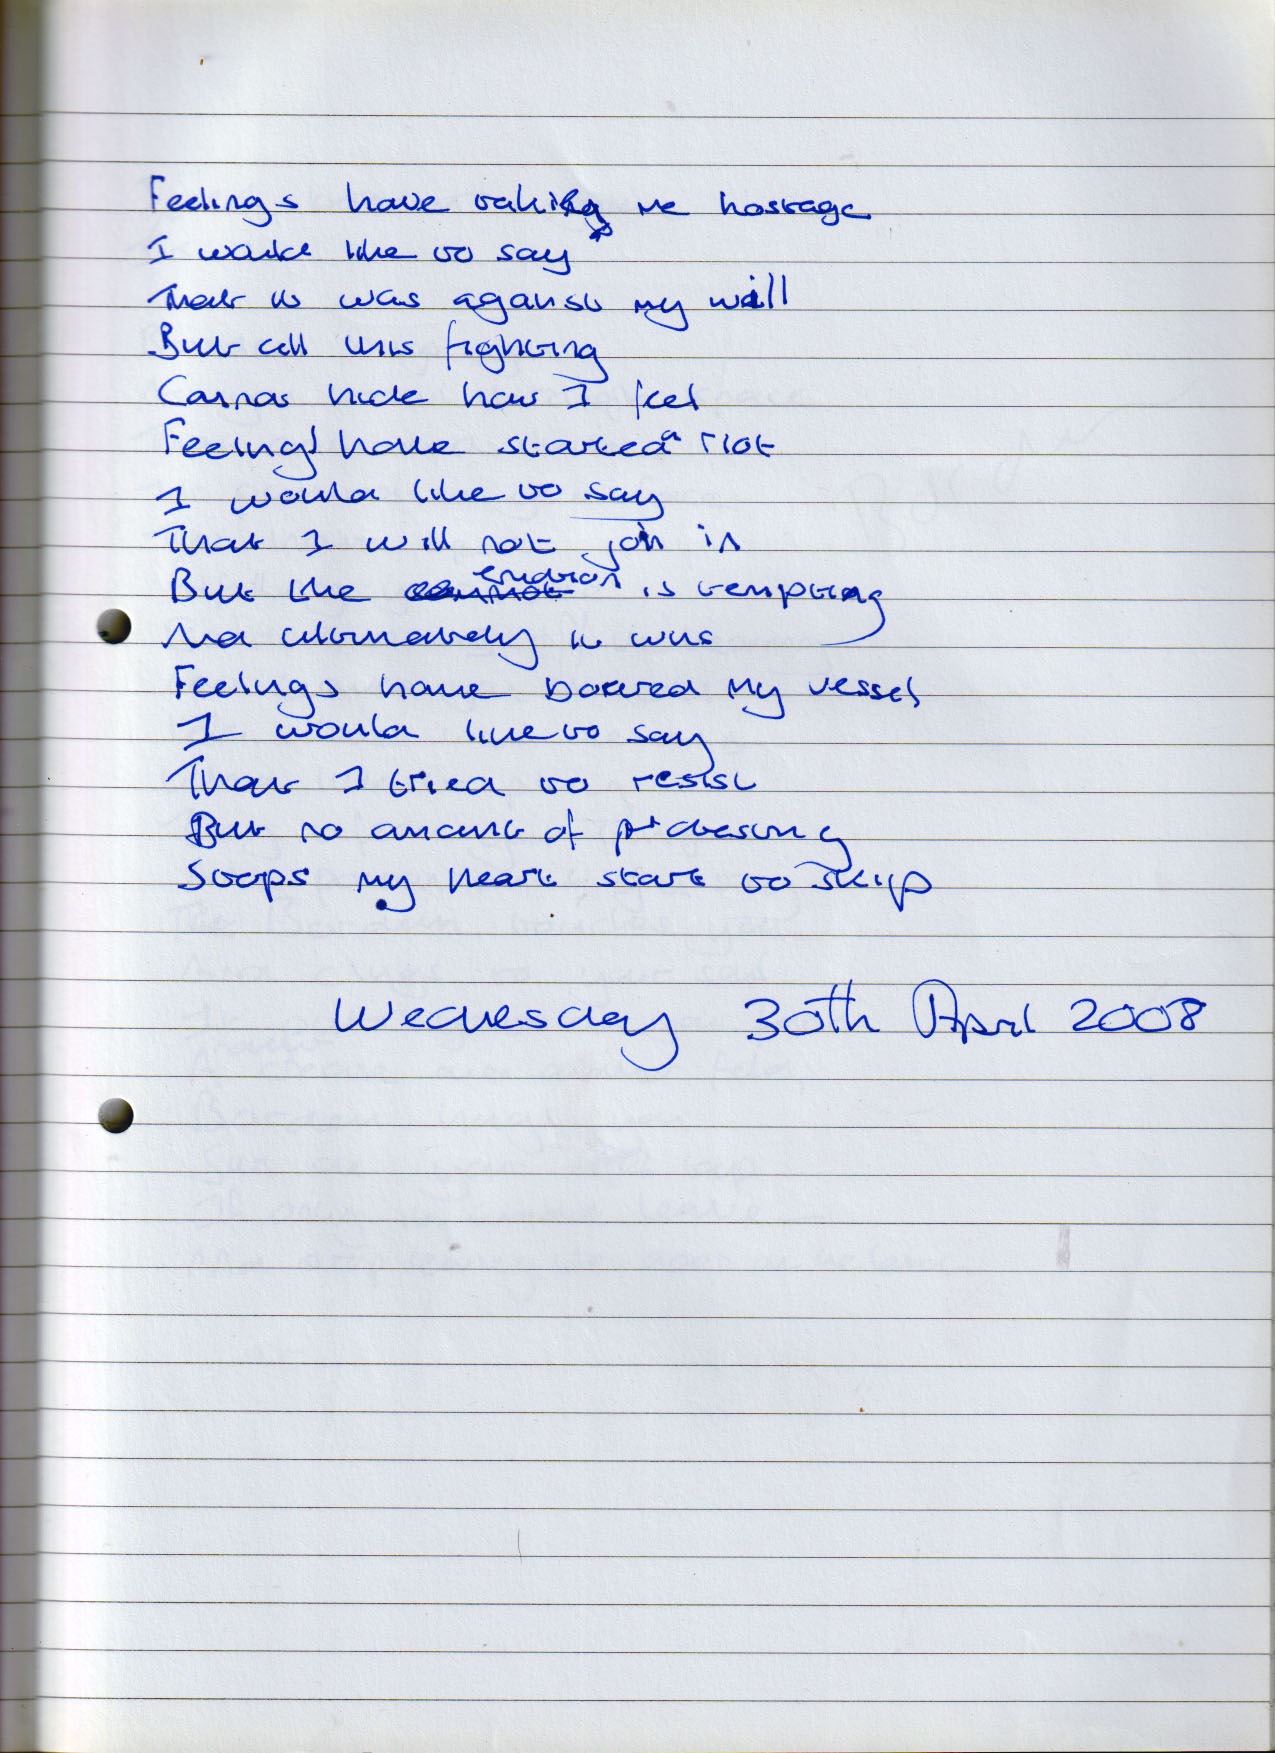 Feelings have taking me hostage
I would like to say
That it was against my will
But all this fighting
Cannot hide how I feel
Feelings have started a riot
I would like to say
That I will not join in
But the emotion is tempting
And ultimately it wins
Feelings have boarded my vessel
I would like to say
That I tried to resist
But no amount of protesting
Stops my heart start to skip
Wednesday 30th April 2008